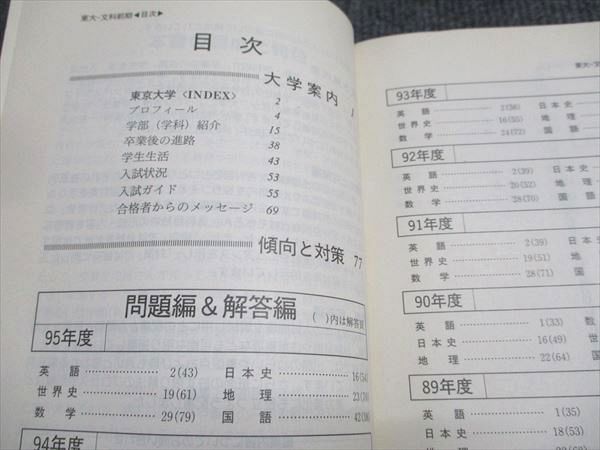 東大-文科前期◀目次▶
目次
大学案内 1
東京大学〈INDEX〉 2
プロフィール 4
学部（学科）紹介 15
卒業後の進路 38
学生生活 43
入試状況 53
入試ガイド 55
合格者からのメッセージ 69
傾向と対策 77
問題編&解答編
( )内は解答
95年度
英語 2(43) 日本史 16(5
世界史 19(61) 地理 23(
数学 29(79) 国語 42(
94年度
東大-文
93年度
英語 2(36) 日本史
世界史 16(55) 地理
数学 24(72) 国語
92年度
英語 2(39) 日本史
世界史 20(52) 地理
数学 28(70) 国
91年度
英語 2(39) 日本
世界史 19(51) 地
数学 28(71) 国
90年度
英語 1(33) 数
日本史 16(49) 世
地理 22(64) 国
89年度
英語 1(35)
日本史 18(53)